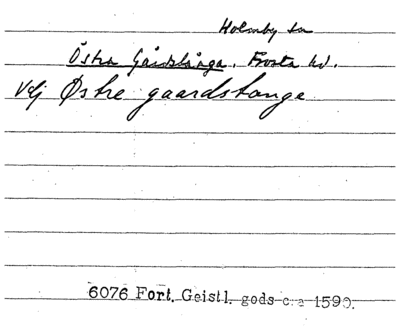 Holmby sn
Östra Gårdstånga. Frosta hd.
Velj Østre gaardstange
6076 Fort. Geistl. gods c:a 1590.